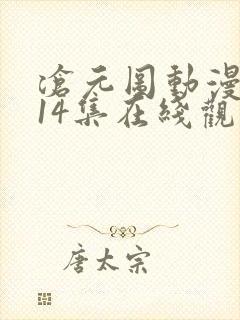 滄元图動漫
14集在綫觀
唐太宗